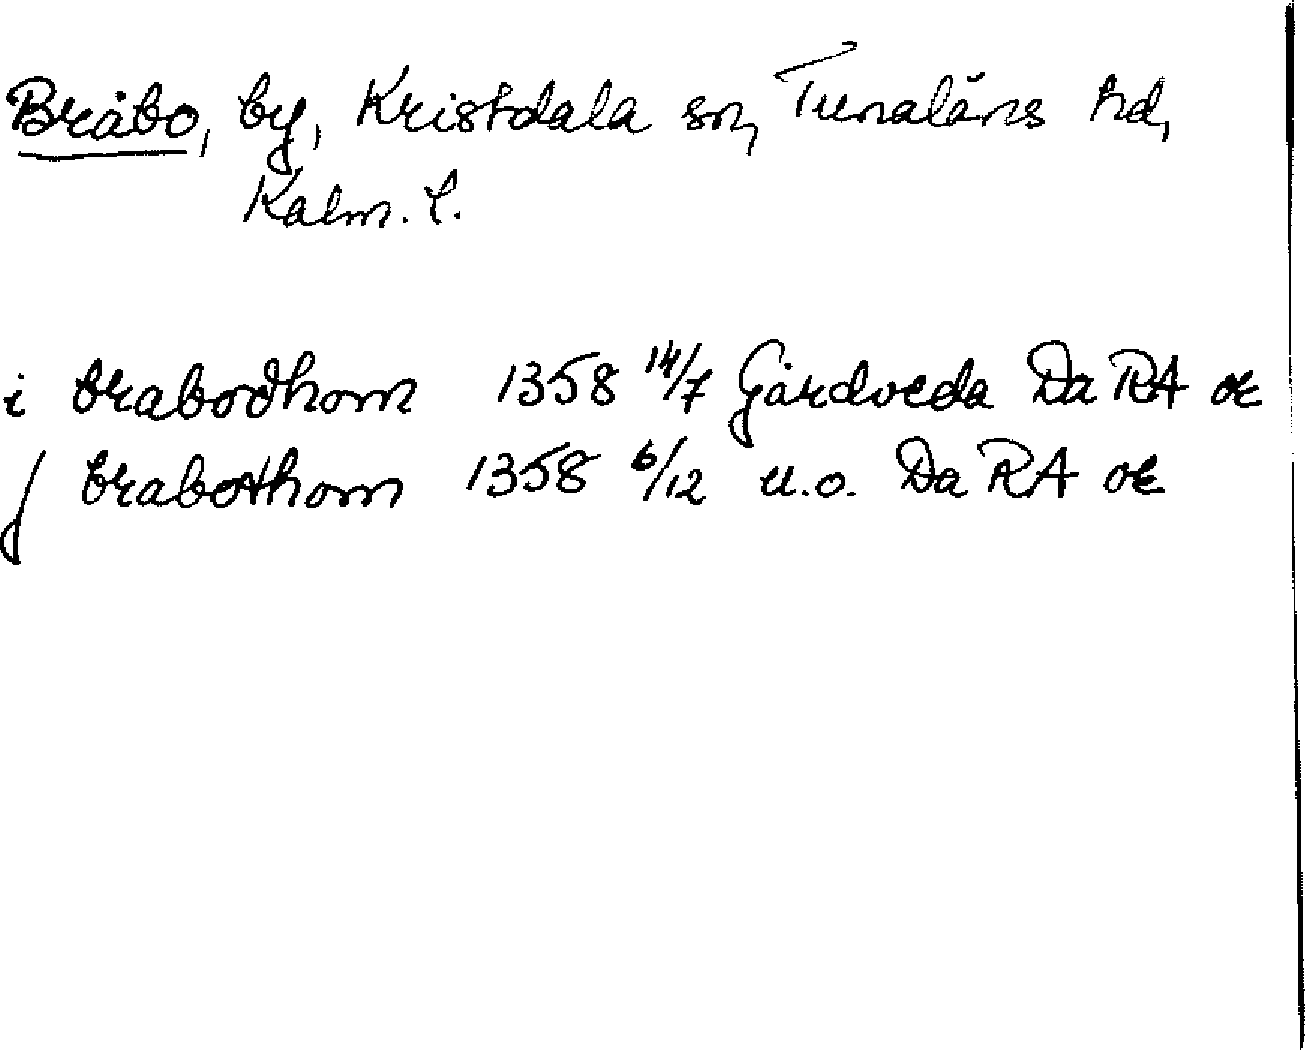 Bråbo, by, Kristdala sn, Tunaläns hd,
Kalm. l.
i brabodhom 1358 14/7 Gårdveda Da RA or
j brabothom 1358 6/12 u.o. Da RA or